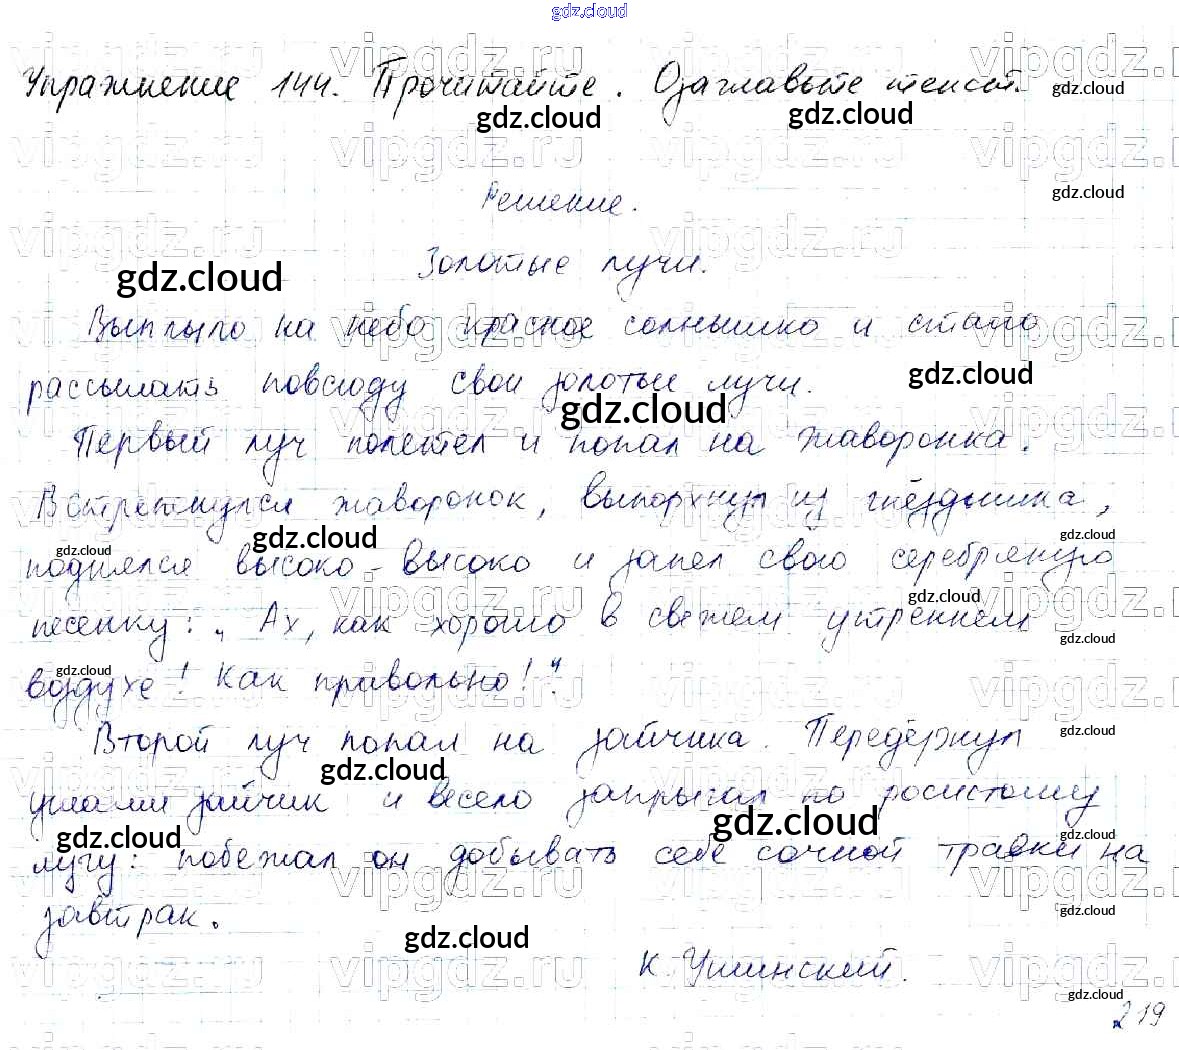 gdz.cloud
Упражнение 144. Прочитайте. Озаглавьте текст.
Решение.
Золотые лучи.
Выплыло на небо красное солнышко и стало
рассылать повсюду свои золотые лучи.
Первый луч полетел и попал на жаворонка.
Встрепенулся жаворонок, выпорхнул из гнёздышка,
поднялся высоко-высоко и запел свою серебряную
песенку: „Ах, как хорошо в свежем утреннем
воздухе! Как привольно!“.
Второй луч попал на зайчика. Передёрнул
ушами зайчик и весело запрыгал по росистому
лугу: побежал он добывать себе сочной травки на
завтрак.
К. Ушинский.
219